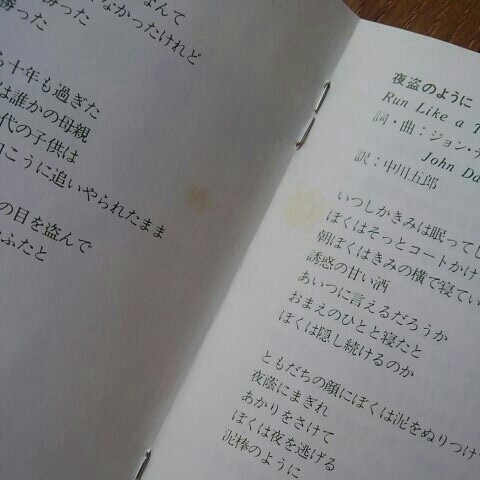 なんて
勝った
なかったけれど
勝った
ら十年も過ぎた
は誰かの母親
代の子供は
向こうに追いやられたまま
の目を盗んで
なふたと
夜盗のように
Run Like a T
詞・曲：ジョン・デ
John Da
訳：中川五郎
いつしかきみは眠ってし
ぼくはそっとコートかけ
朝ぼくはきみの横で寝てい
誘惑の甘い酒
あいつに言えるだろうか
おまえのひとと寝たと
ぼくは隠し続けるのか
ともだちの顔にぼくは泥をぬりつけ
夜蔭にまぎれ
あかりをさけて
ぼくは夜を逃げる
泥棒のように